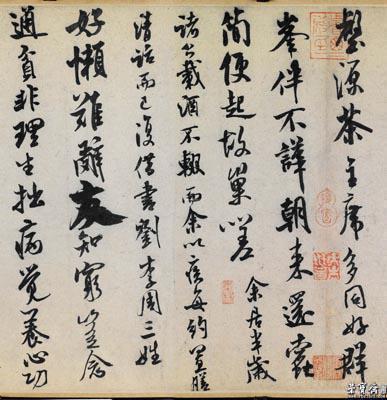 懿源茶主席多同好群
峯伴不譁朝来還蠹
簡便起故巢嗟
余居半歲
諸公載酒不輟而余以疾每約置膳
清話而已復借書劉李周三姓
好懶難辭友知窮豈念
通貧非理生拙病覺養心功